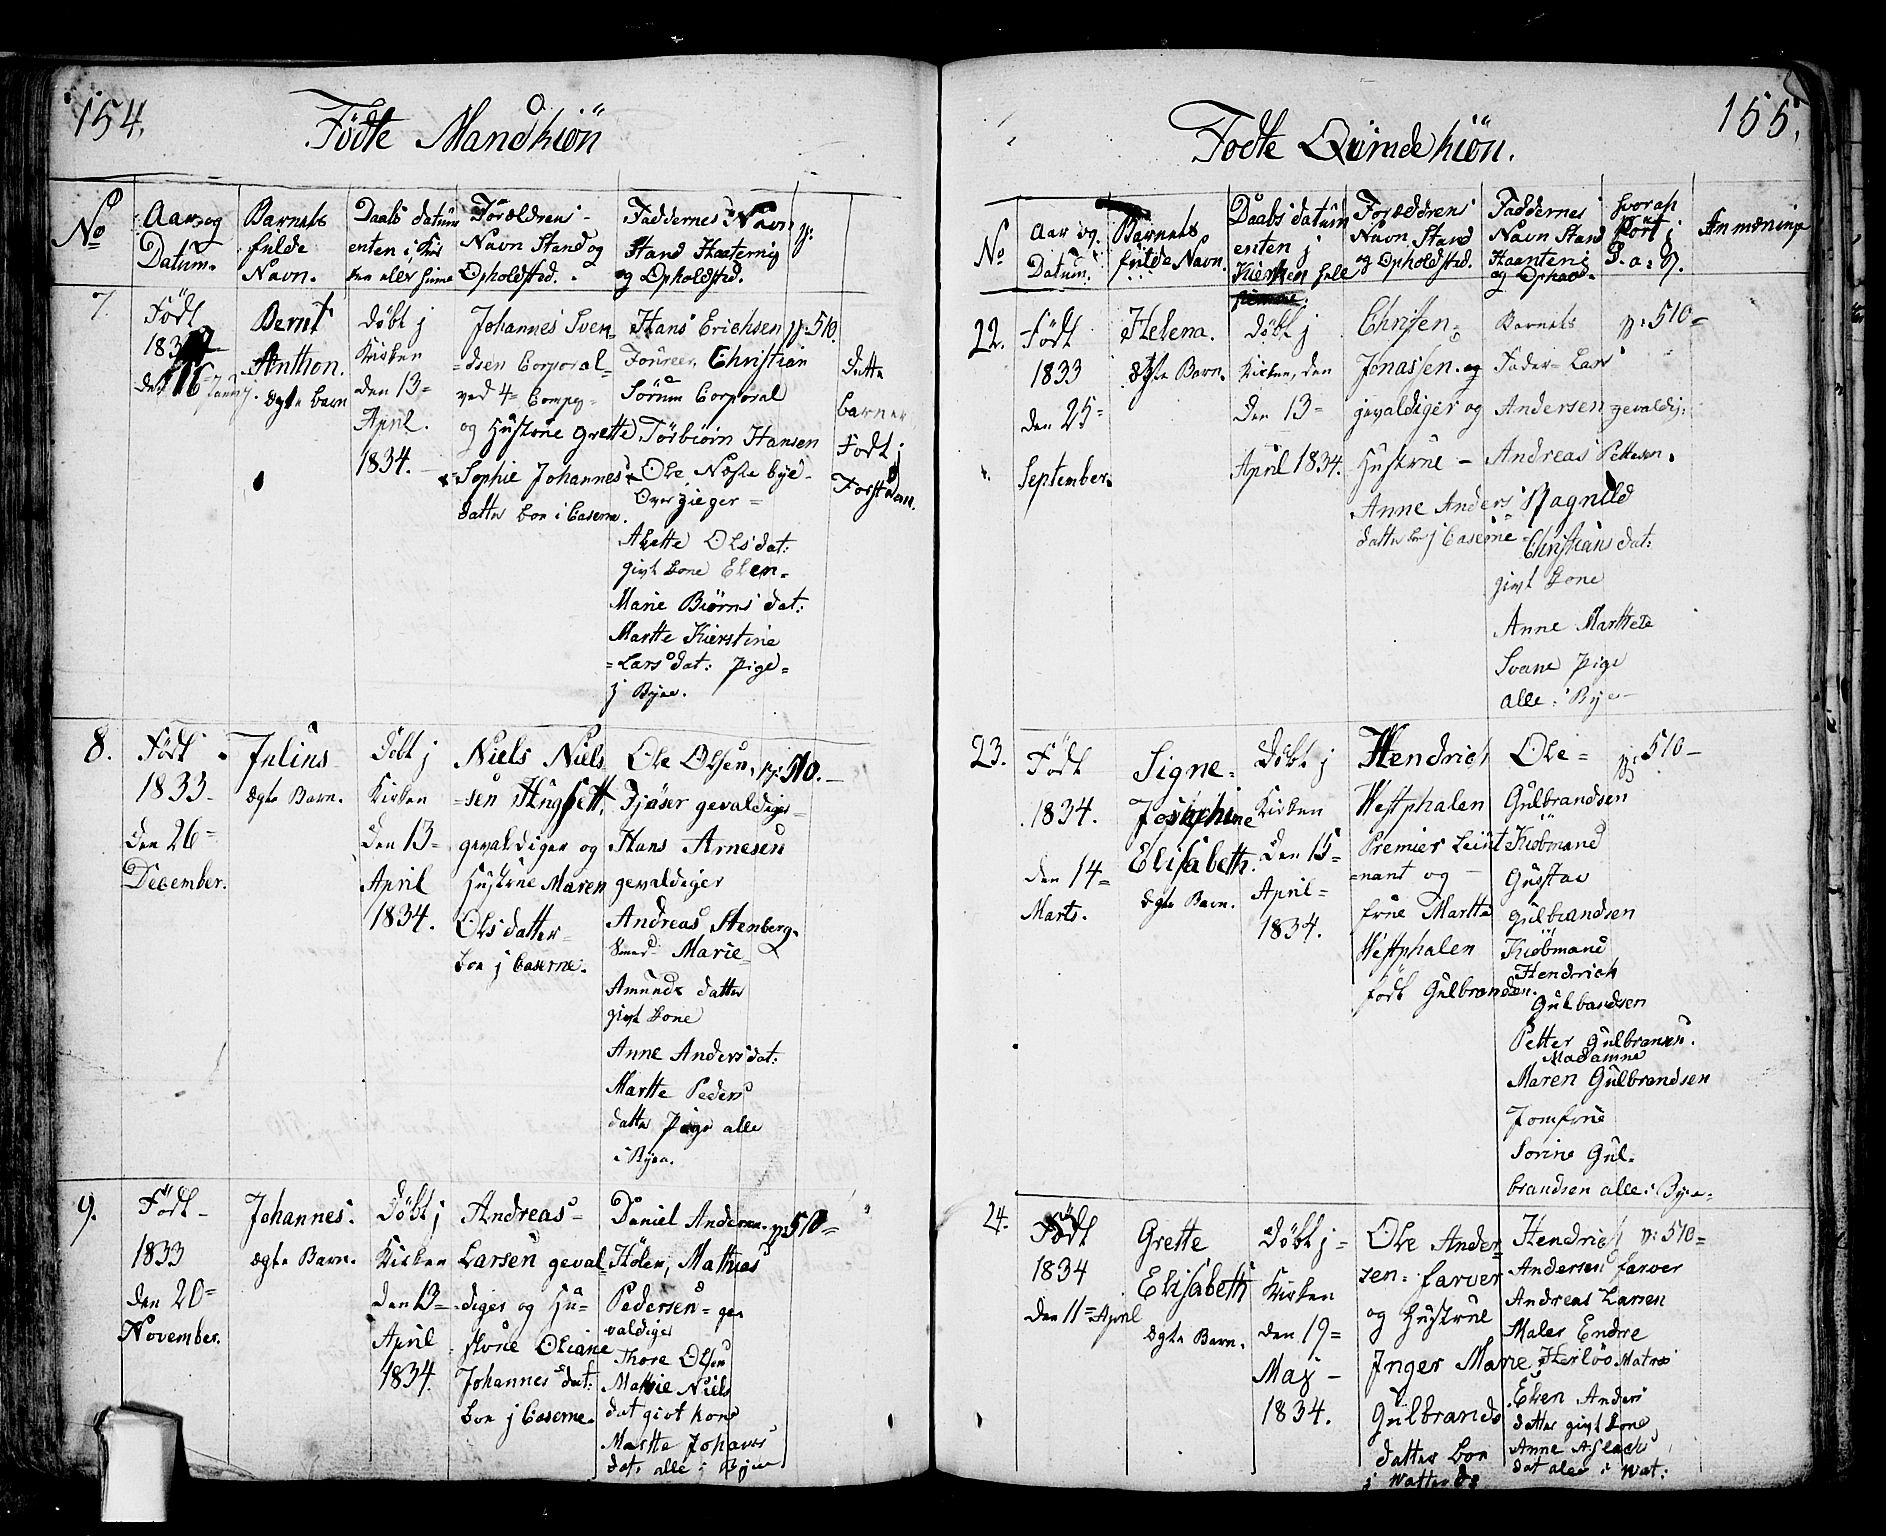 154.
Födte Mandkiön
No
Aar og
Datum.
Barnets
fulde
Navn.
Daabs datum
enten i Kir
ken eller hiime
Forældrens
Navn Stand og
Opholdsted.
Faddernes Navn
Stand Haatering
og Opholdsted.
p:
7.
Födt
den 16
Bernt
Anthon.
ægte barn
döbt j
Kirken
den 13=
April.
1834.
Johannes Sven
=dsen Corporal=
ved 4=
og Hustrue Grette
Sophie Johannes
datter boe i Caserne.
Hans Erichsen
Foureer, Christian
Sörum Corporal
Törbiörn Hansen
Ole Næste bye-
Overjieger=
Alette Ols dat:
givt kone Elen=
Marie Biörns dat:
Martte Kierstine
=Lars dat: pige=
j Byee.
p: 510.
dette
barn er
Födt j
Forstaden.
8.
Födt
1833-
den 26=
December.
Julius
ægte Barn.
Döbt j
Kirken
den 13=
April
1834.
Niels Niels
=sen
gevaldiger og
Hustrue Maren
Ols datter
boe j Caserne.
Ole Olsen,
Fjöser gevaldiger
Hans Arnesen
gevaldiger
Andreas Stenberg
Smed- Marie=
Amunds datter
givt kone
Anne Anders dat:
Martte Peders
datter Pige alle
i Byen.
p: 510.-
9.
Födt-
1833
den 20=
November.
Johannes.
ægte Barn.
Döbt j
Kirken
den 13=
April
1834.
Andreas-
Larsen geval=
diger og Hu=
strue Oliane
Johannes dat:
boe j Caserne.
Daniel Andersen
Holen, Mathias
Pedersen= ge=
valdiger
Thore Olsen
Niels
dat givt kone
Martte Johans
dat. alle i Byen
p: 510=
155.
Födte Qvindekiön.
No
Aar og.
Datum.
Barnets
fulde Navn.
Daabs datum
enten j
Kierken hell
hiemme.
Forældrens
Navn Stand
og Opholdsted.
Faddernes
Navn Stand
Haantering
og Ophold.
hvorah
fört j
P. a: 9.
Anmæninge
22.
Födt
1833
den 25=
September.
Helena.
ægte Barn.
Döbt j
Kirken, den
Den 13=
April 1834.
Christen=
Jonassen. og
gevaldiger og
Hustrue-
Anne Anders
datter boe j Caserne
Barnets
Fader- Lars
Andersen =gevaldig:
Andreas Pettesen.
Ragnild
Christians dat:
givt kone
Anne Marthete
Svane pige
alle i Bye-
p: 510=
23.
Födt
1834.
den 14=
Marts.
Signe=
Josephine
Elisabeth.
ægte Barn.
Döbt j
Kirken
den 15=
April=
1834.
Hendrich
Westphalen
Premier Leiut
=nant og-
frue Martte
Westphalen
födt Gulbrandsen.
Ole=
Gulbrandsen
Kiöbmand
Gustav
Gulbrandsen
Kiöbmand
Hendrich
Gulbandsen
Petter Gulbransen.
Madamme
Maren Gulbrandsen
Jomfrue
Sorine Gul-
brandsen alle i Byen=
p: 510-
24.
Födt
1834
den 11= April
Grette
Elisabeth
ægte Barn.
Döbt j=
Kirken
den 19=
Maj-
1834.
Ole Ander=
sen= farver
og Hustrue
Inger Marie
Gulbrands
datter boe
j
Hendrich
Andersen farver
Andreas Larsen
Maler Endre
Elen Anders
datter givt kone,
Anne Aslachs
dat alle i Wat:
p: 510=